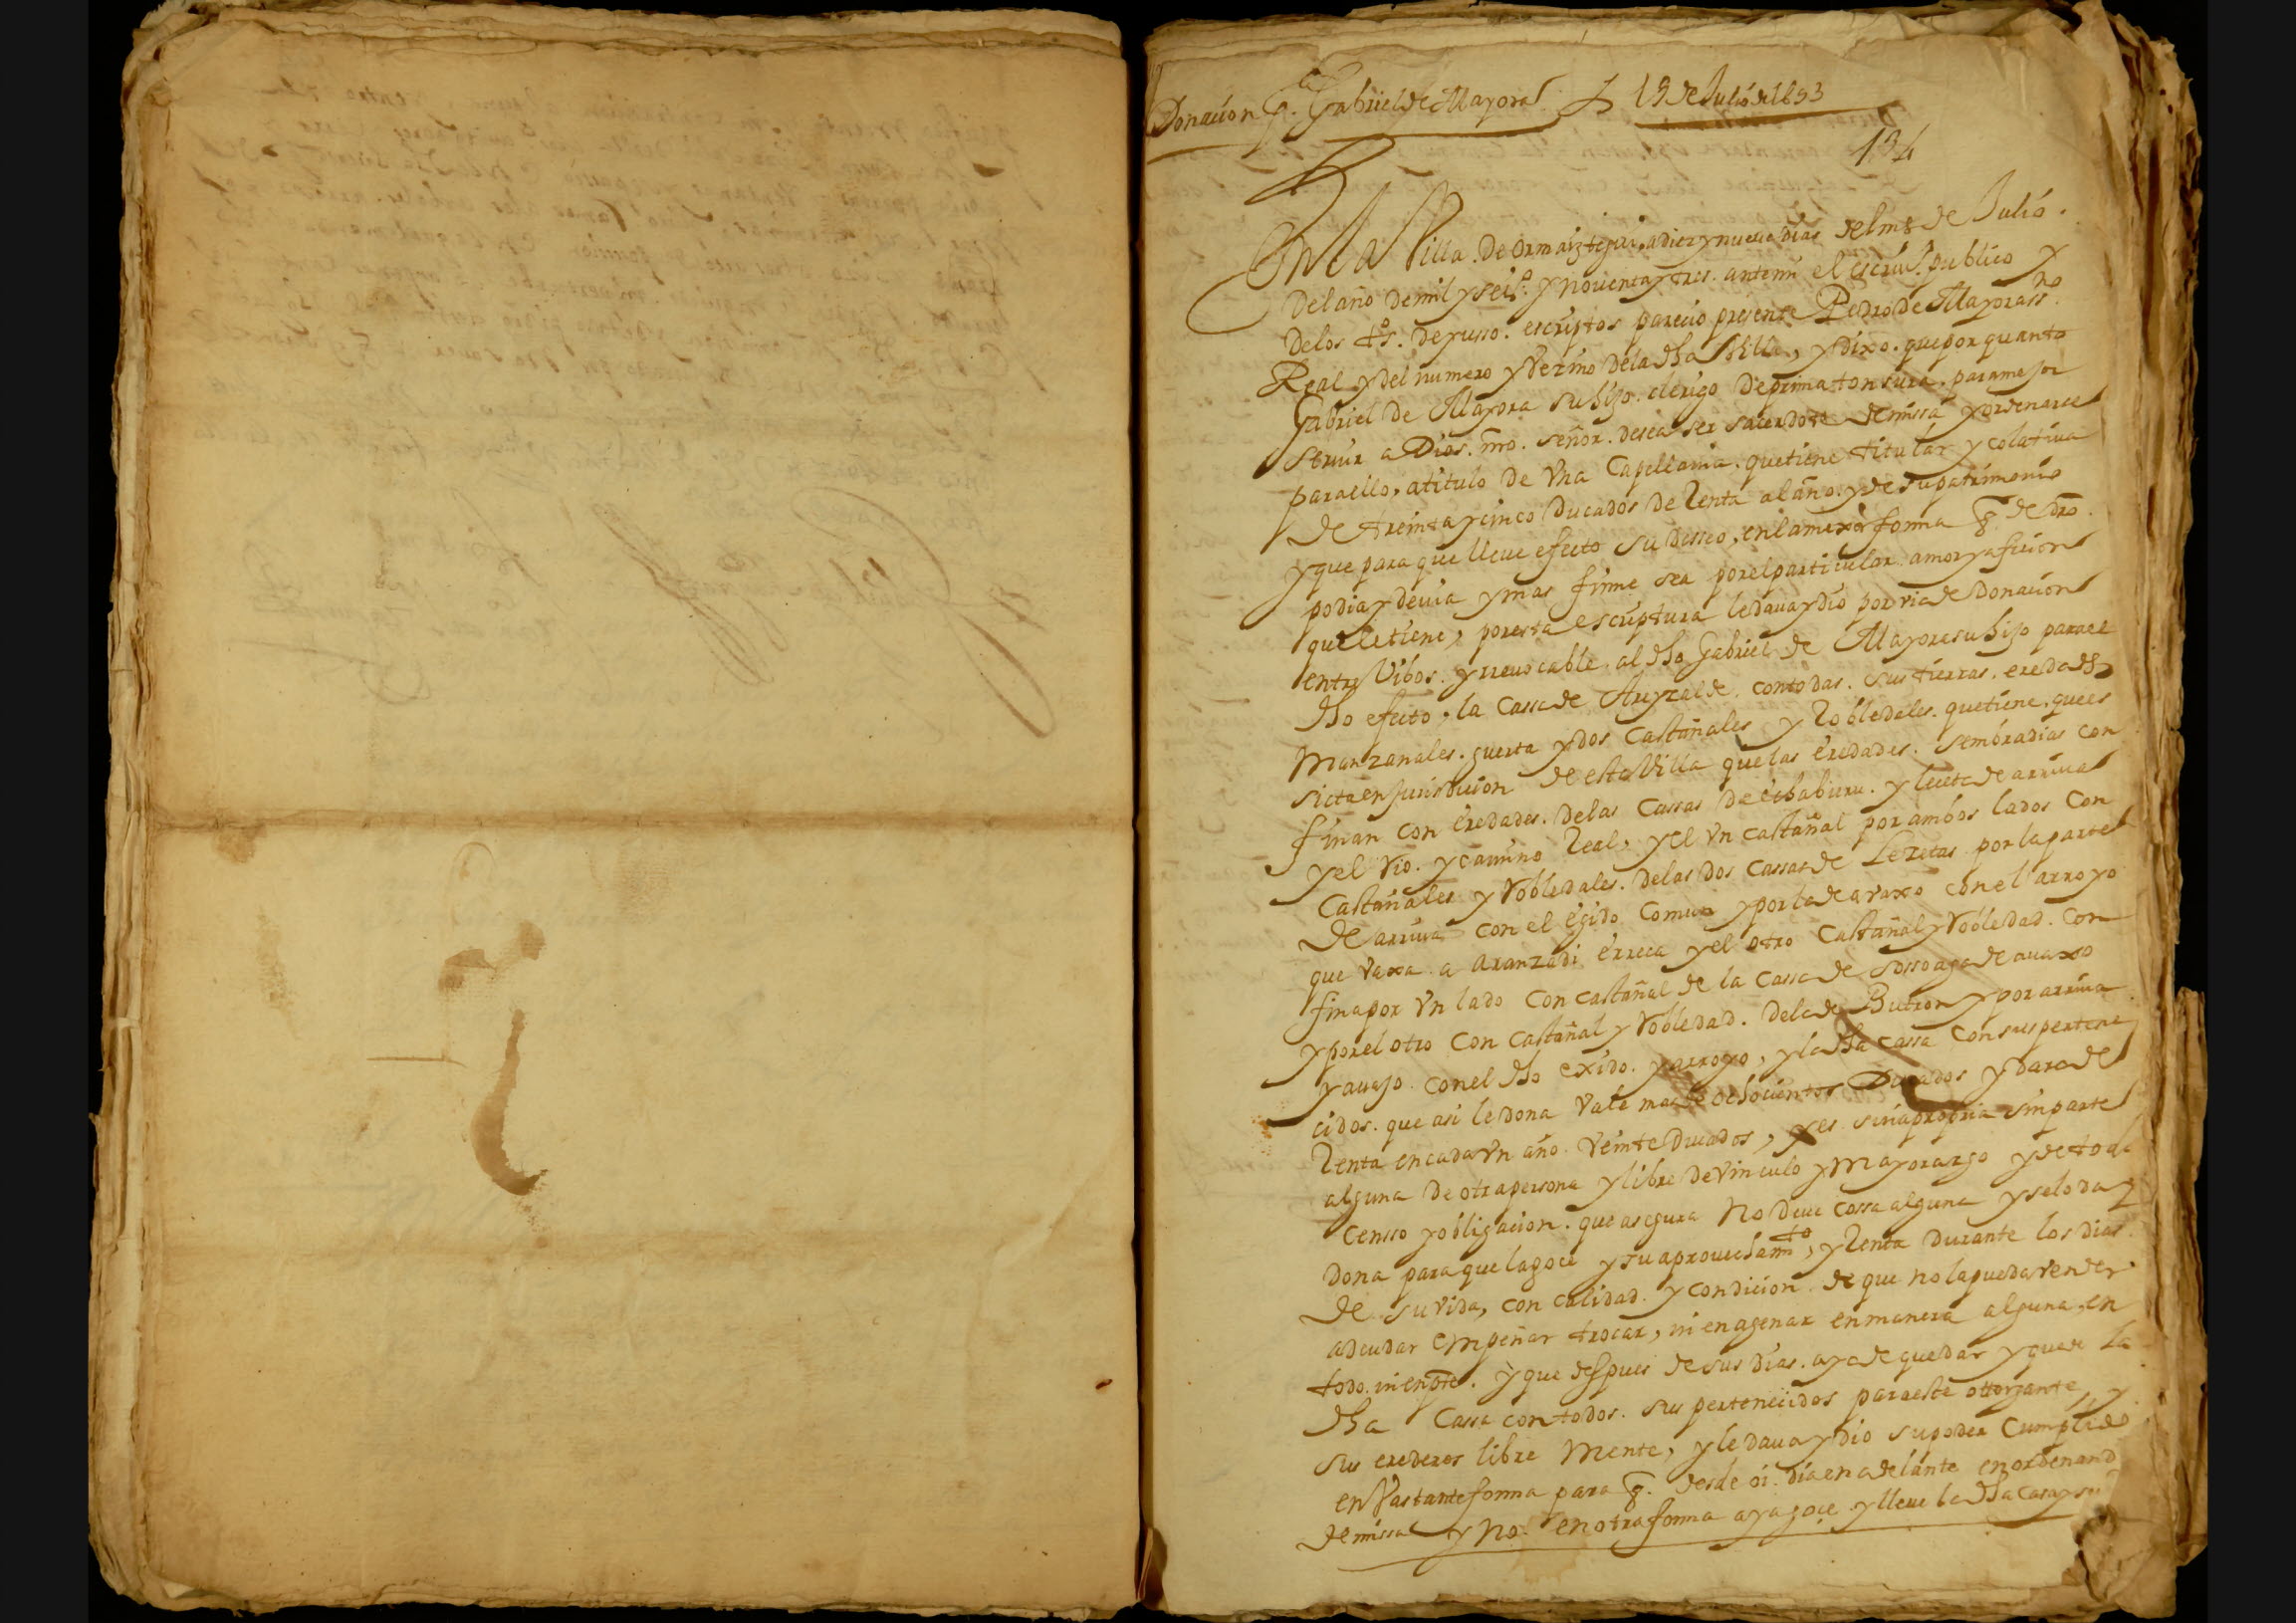 Donaçion pa. Gabriel de Mayora 19 de Julio de 1693
134
En la Villa. De Ormaiztegui, a diez y nueue dias del mes de Julio.
Del año De mil y seis.os y nouenta y tres. ante mi el escriu.o publico y
Delos t.os. De yusso. escriptos parecio presente Pedro de Mayora ss.no
Real y del numero y Vezino dela dha Villa, y dixo. que por quanto
Gabriel de Mayora su hijo. clerigo De prima tonsura. para mejor
seruir a Dios. nro. señor. desea ser sacerdote de missa y ordenarse
para ello, a titulo de Vna Capellania. que tiene titular y colatiua
de treinta y cinco Ducados de Renta al año. y de su patrimonio
y que para que lleue efecto su desseo, en la mexor forma q. de dro.
podia y deuia y mas firme sea por el particular amor y aficion
que le tiene, por esta escriptura le daua y dio por via de Donacion
entre Vibos. y rreuocable. al dho Gabriel de Mayora su hijo para el
dho efecto, la Cassa de Aryzalde. con todas. sus tierras. eredades
Manzanales. guerta y dos Castañales y Robledales. que tiene, que es
sicta en jurisdicion de esta Villa que las eredades. sembradias con
finan con eredades. Delas Cassas De echaburu. y leceta de arriua
y el Rio. y camino Real, y el Vn castañal por ambos lados con
Castañales y Robledales. Delas Dos Cassas de Lezetas por la parte
De arriua con el egido. Comun y por la de avaxo con el arroyo
que vaxa a Aranzadi erreca y el otro Castañal y Robledad. con
fina por Vn lado con castañal de la Cassa de Sossoaga de auaxo
y por el otro con castañal y Robledad. Dela de Butron y por arriua
y auajo. con el dho exido. y arroyo, y la dha cassa con sus pertene
cidos. que asi le dona Vale mas de ochocientos Ducados y dara de
Renta en cada Vn año. Veinte Ducados, y es suia propria sin parte
alguna De otra persona y libre De vinculo y Mayorazgo y de todo
Censso y obligacion. que asegura no Deue cossa alguna y se lo da y
Dona para que la goce y su aprouecham.to, y Renta durante los dias
De su vida, con calidad. y condicion. de que no la pueda vender
adeudar empeñar trocar, ni enagenar en manera alguna, en
todo. ni en pte. y que despues de sus dias. aya de quedar y quede la
dha Cassa con todos. sus pertenecidos para este otorgante, y
sus erederos libre mente, y le daua y dio su poder Cumplido
en Vastante forma para q. desde oi. dia en adelante en ordenand
de missa y no. en otra forma aya goce y lleue la dha casa y su